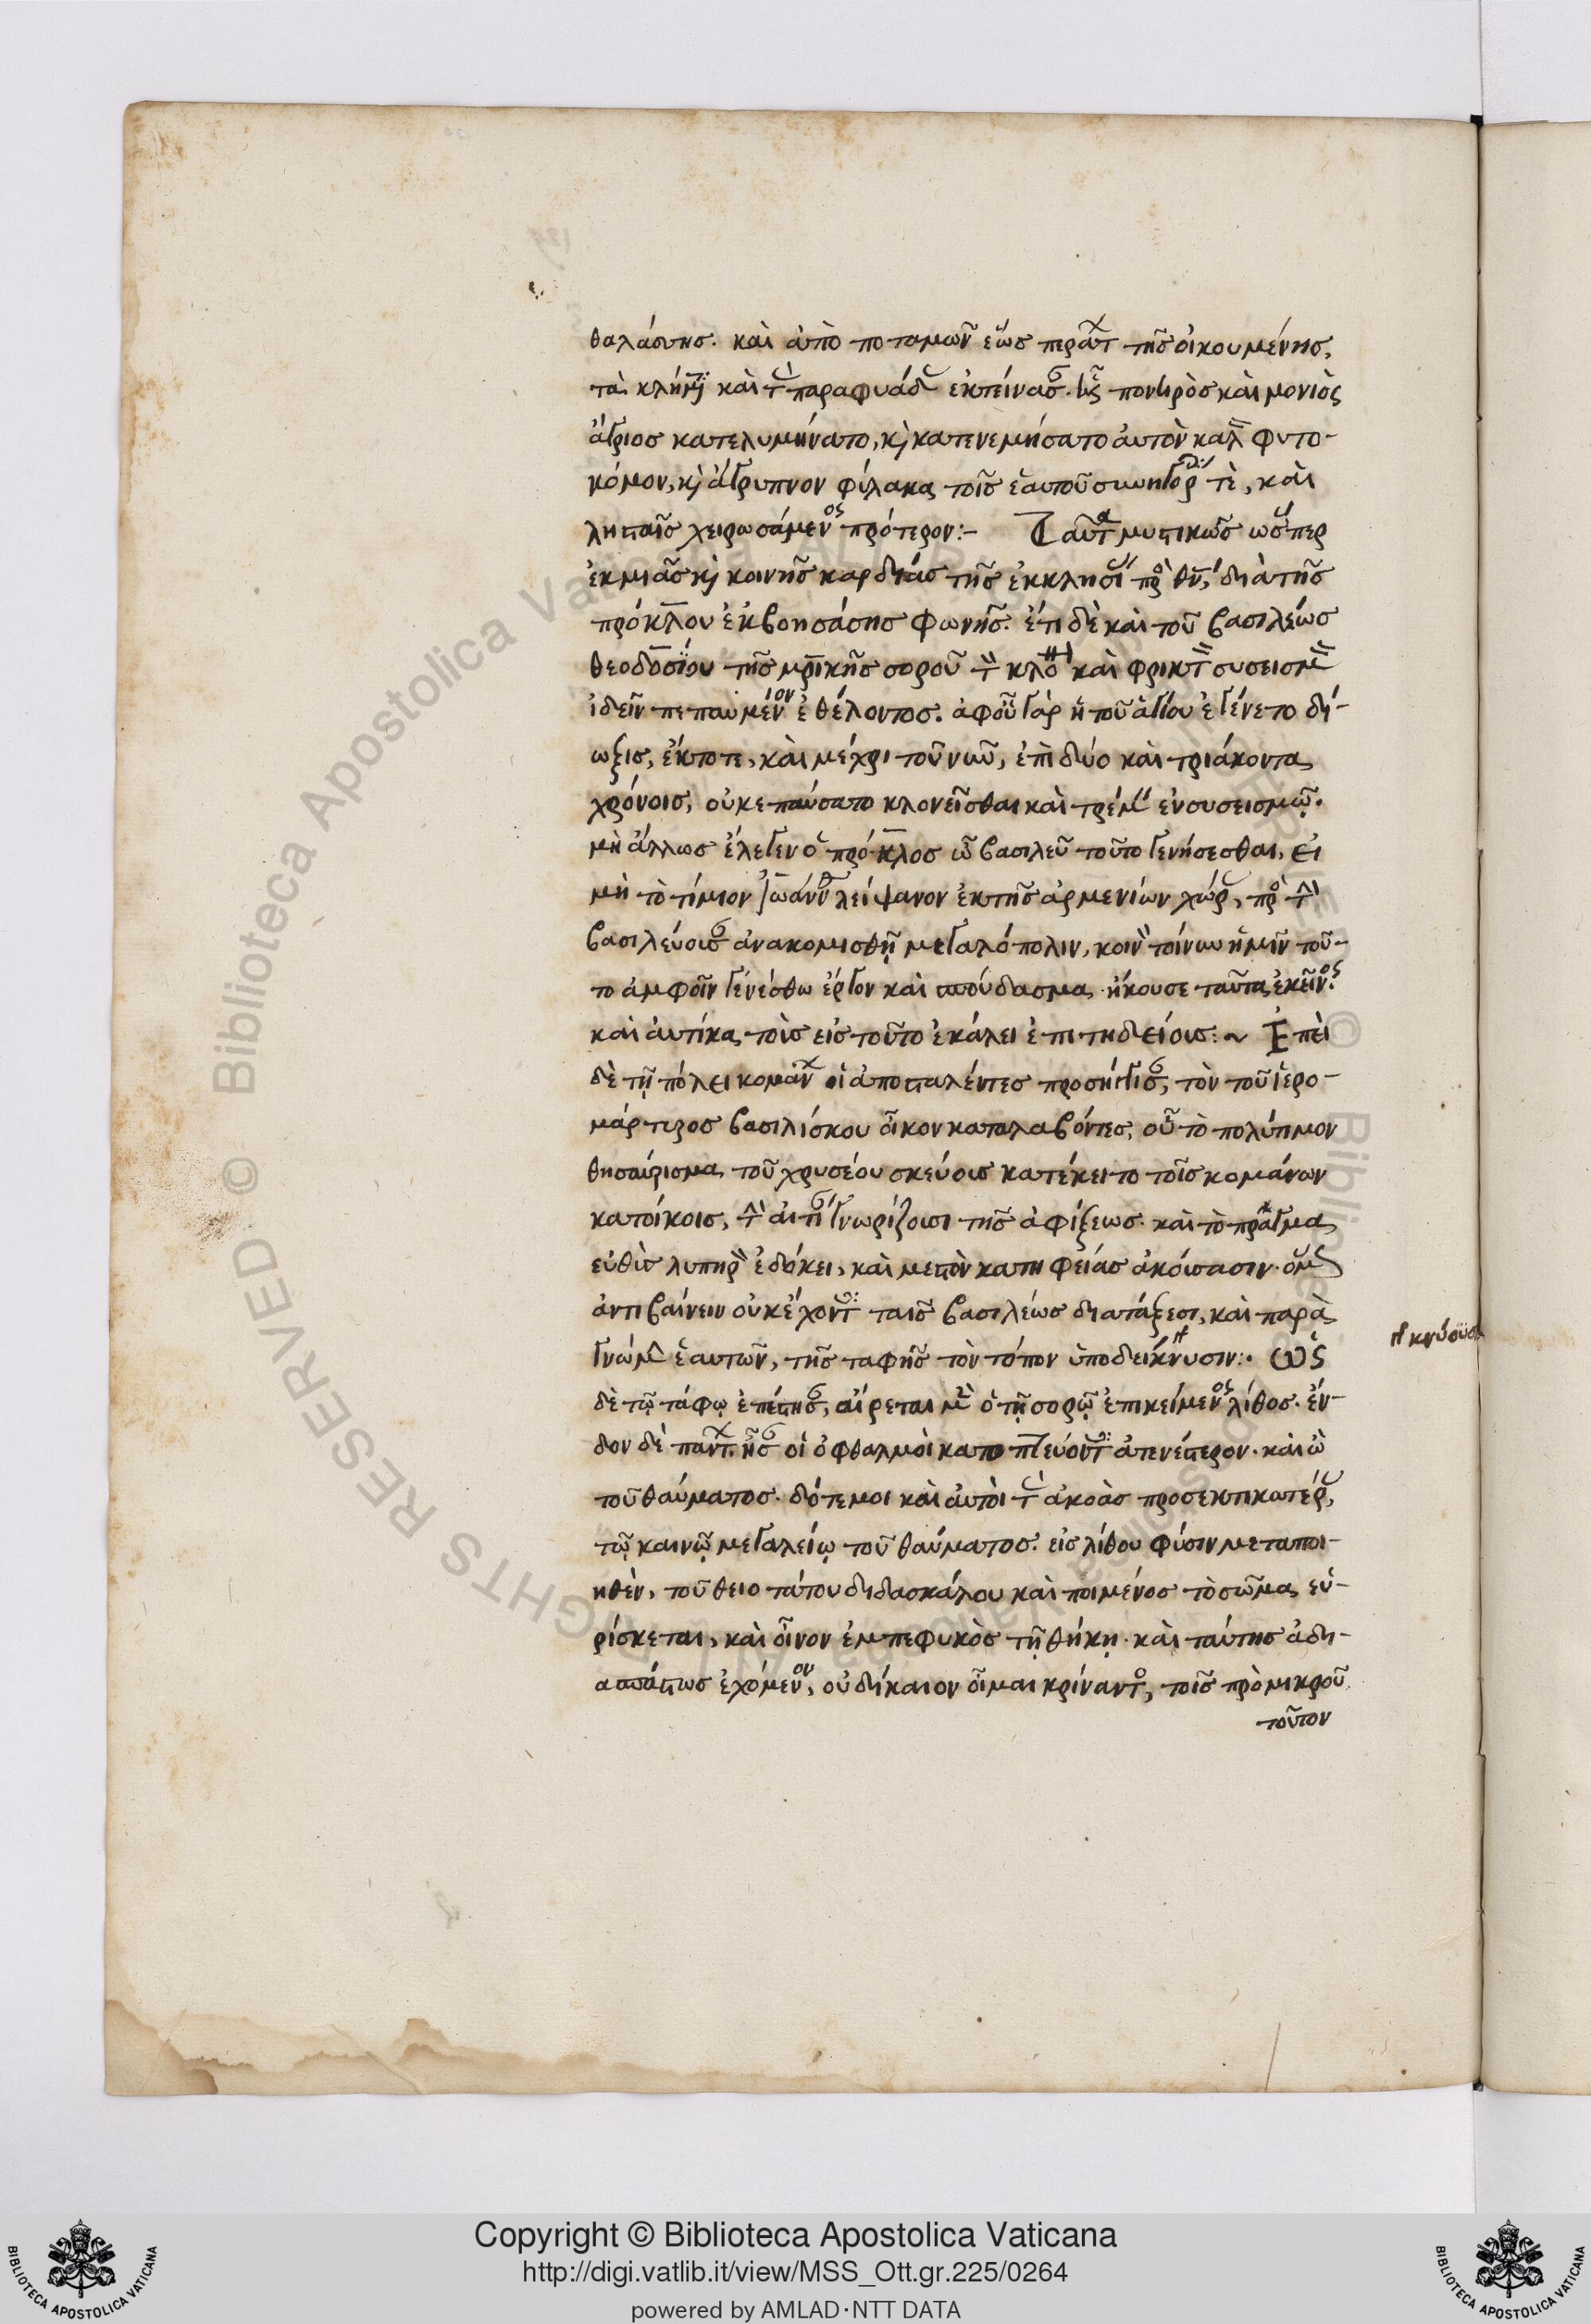 θαλάσσης. καὶ ἀπὸ ποταμῶν ἕως περάτ τῆς οἰκουμένης,
τὰ κλήμ καὶ τ παραφυάδ ἐκτείνασ. ὃς πονηρὸς καὶ μονιὸς
ἄγριος κατελυμήνατο, κὶ κατενεμήσατο ἀυτὸν καλ φυτο-
κόμον, κὶ ἄγρυπνον φύλακα τοῖς ἑαυτοῦ συνηγορ τὲ, καὶ
λησταῖς χειρωσάμενος πρότερον:- Ταῦτα μυστικῶς ὥσπερ
ἐκ μιᾶς κὶ κοινῆς καρδίας τῆς ἐκκλησί πρὸ θν, διὰ τῆς
πρόκλου ἐκβοησάσης φωνῆς. ἔτι δὲ καὶ τοῦ βασιλέως
θεοδοσίου τῆς μρικῆς σοροῦ τ κλο καὶ φρικτ συσεισμ
ἰδεῖν πεπαυμένον ἐθέλοντος. ἀφοῦ γὰρ ἡ τοῦ ἁγίου ἐγένετο δί-
ωξις, ἔκτοτε, καὶ μέχρι τοῦ νῦν, ἐπὶ δύο καὶ τριάκοντα
χρόνοις, οὐκ ἐπαύσατο κλονεῖσθαι καὶ τρέμ ἐν συσεισμῷ.
μὴ ἄλλως ἔλεγεν ὁ πρόκλος ὦ βασιλεῦ τοῦτο γενήσεσθαι, εἰ
μὴ τὸ τίμιον Ἰωάνν λείψανον ἐκ τῆς ἀρμενίων χώρ, πρὸ τ
βασιλεύουσ ἀνακομισθῇ μεγαλόπολιν, κοιν τοίνυν ἡμῖν τοῦ-
το ἀμφοῖν γενέσθω ἔργον καὶ σπούδασμα. ἤκουσε ταῦτα ἐκεῖνος.
καὶ ἀυτίκα τοὺς εἰς τοῦτο ἐκάλει ἐπιτηδείους:~ Ἐπεὶ
δὲ τῇ πόλει κομάν οἱ ἀποσταλέντες προσήγγισ, τὸν τοῦ ἱερο-
μάρτυρος βασιλίσκου οἶκον καταλαβόντες, οὗ τὸ πολύτιμον
θησαύρισμα τοῦ χρυσέου σκεύους κατέκειτο τοῖς κομάνων
κατοίκοις, τ αἰτί γνωρίζουσι τῆς ἀφίξεως. καὶ τὸ πρᾶγμα
εὐθὺς λυπηρ ἐδόκει, καὶ μεστὸν κατηφείας ἀκούσασιν. ὅμ
ἀντιβαίνειν οὐκ ἔχοντ ταῖς βασιλέως διατάξεσι, καὶ παρὰ
γνώμ ἑαυτῶν, τῆς ταφῆς τὸν τόπον ὑποδεικνυσιν:. Ὡς
κνύουσι
δὲ τῷ τάφῳ ἐπέστησ, αἴρεται μ ὁ τῇ σορῷ ἐπικείμενος λίθος. ἔν-
δον δὲ παντ. ἦσ οἱ ὀφθαλμοὶ κατοπτεύοντ ἀπενέστερον. καὶ ὢ
τοῦ θαύματος. δότε μοι καὶ ἀυτοὶ τ ἀκοὰς προσεκτικωτέρ,
τῷ καινῷ μεγαλείῳ τοῦ θαύματος. εἰς λίθου φύσιν μεταποι-
ηθὲν, τοῦ θειοτάτου διδασκάλου καὶ ποιμένος τὸ σῶμα εὑ-
ρίσκεται, καὶ οἷνον ἐμπεφυκὸς τῇ θήκῃ. καὶ ταύτης ἀδι-
ασπάστως ἐχόμενον, οὐ δίκαιον οἶμαι κρίναντο, τοῖς πρὸ μικροῦ
τοῦτον
Copyright © Biblioteca Apostolica Vaticana
http://digi.vatlib.it/view/MSS_Ott.gr.225/0264
powered by AMLAD·NTT DATA